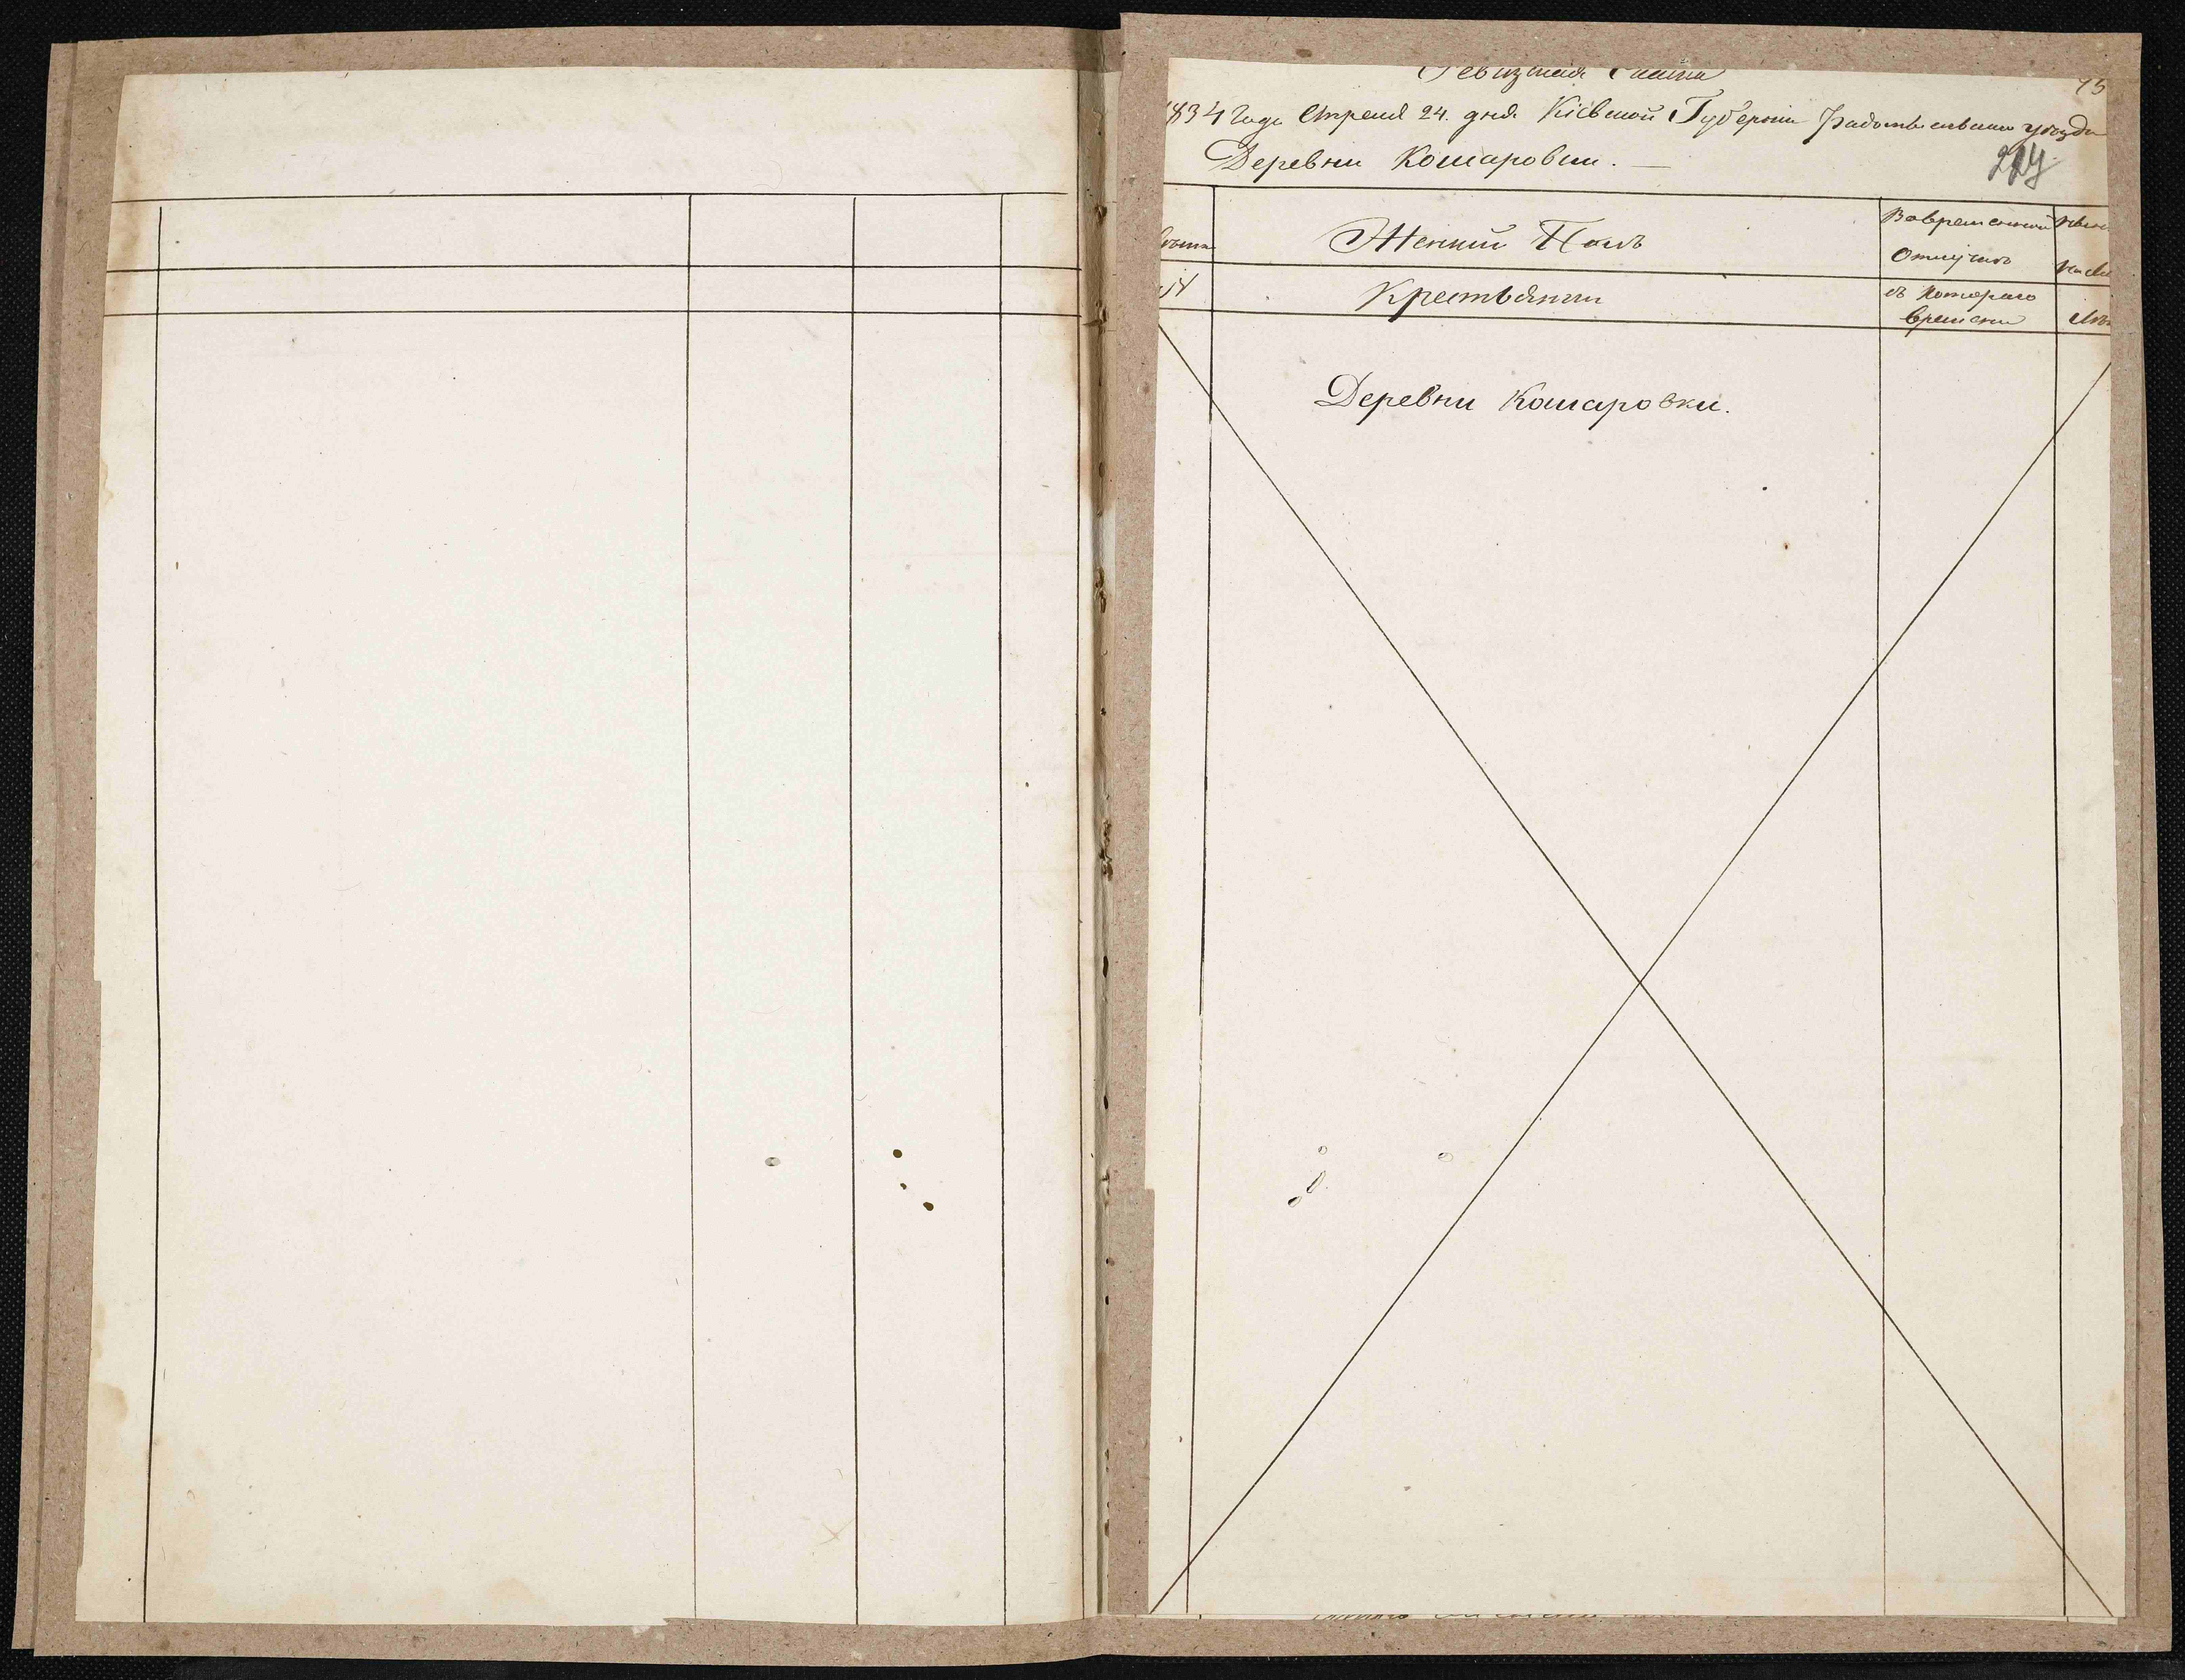 Ревизская Сказка
1834 Года Апреля 24. дня Кіевской Губерніи Радомысльскаго уѣзда
Деревни Кошаровки.
Женскій Полъ
Во временной
Отлучкѣ
Крестьянки
съ котораго
времени
Деревни Кошаровки.